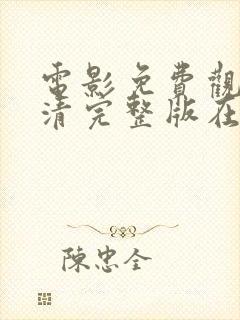 電影免費觀
清完整版在
陳忠全